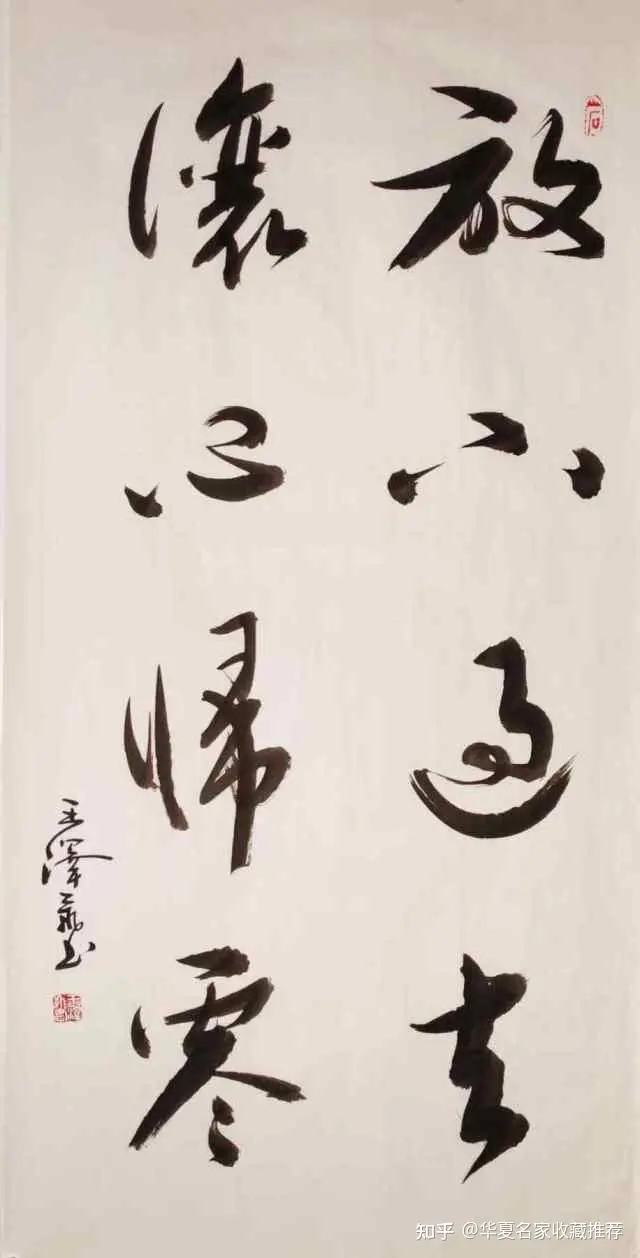 放下過去
讓心歸零
王澤 书
知乎 @华夏名家收藏推荐